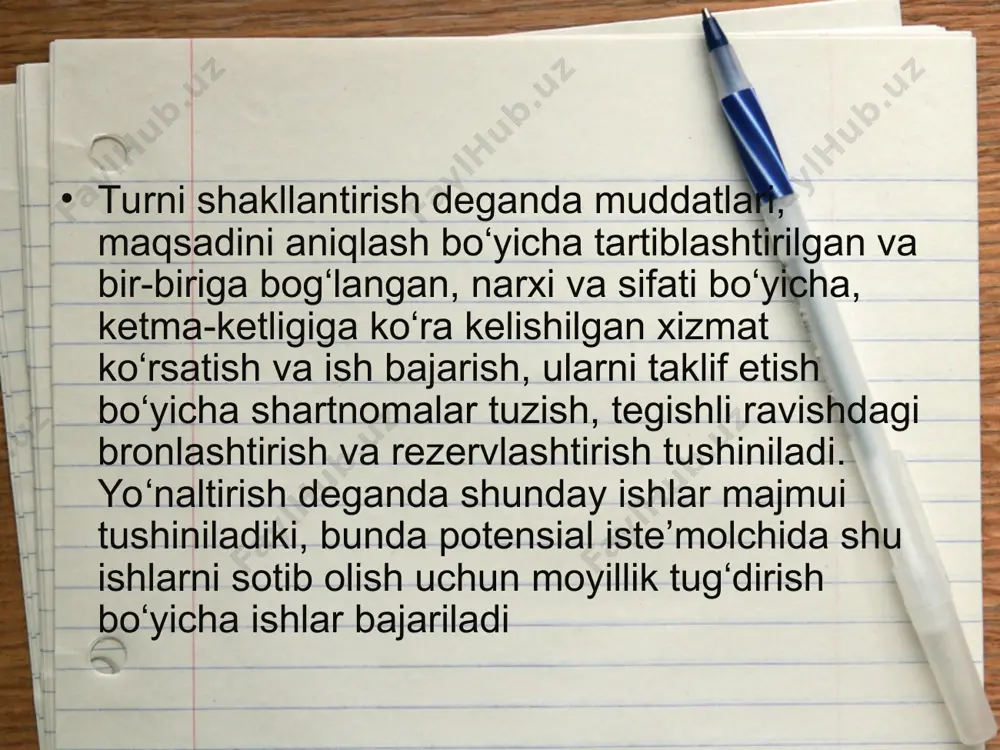 • Turni shakllantirish deganda muddatlari,
maqsadini aniqlash bo‘yicha tartiblashtirilgan va
bir-biriga bog‘langan, narxi va sifati bo‘yicha,
ketma-ketligiga ko‘ra kelishilgan xizmat
ko‘rsatish va ish bajarish, ularni taklif etish
bo‘yicha shartnomalar tuzish, tegishli ravishdagi
bronlashtirish va rezervlashtirish tushiniladi.
Yo‘naltirish deganda shunday ishlar majmui
tushiniladiki, bunda potensial iste’molchida shu
ishlarni sotib olish uchun moyillik tug‘dirish
bo‘yicha ishlar bajariladi
FaylHub.uz
FaylHub.uz
FaylHub.uz
FaylHub.uz
FaylHub.uz